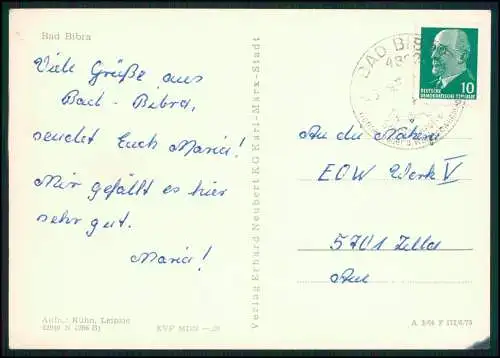 Bad Bibra
Viele Grüße aus
Bad-Bibra,
sendet Euch Maria!
Mir gefällt es hier
sehr gut.
Maria!
Aufn.: Kühn, Leipzig
EVP MDN
Verlag Erhard Neubert KG Karl-Marx-Stadt
BAD BIB
10
DEUTSCHE
DEMOKRATISCHE REPUBLIK
An die Näherei
EOW Werk V
5701 Zella
Aue